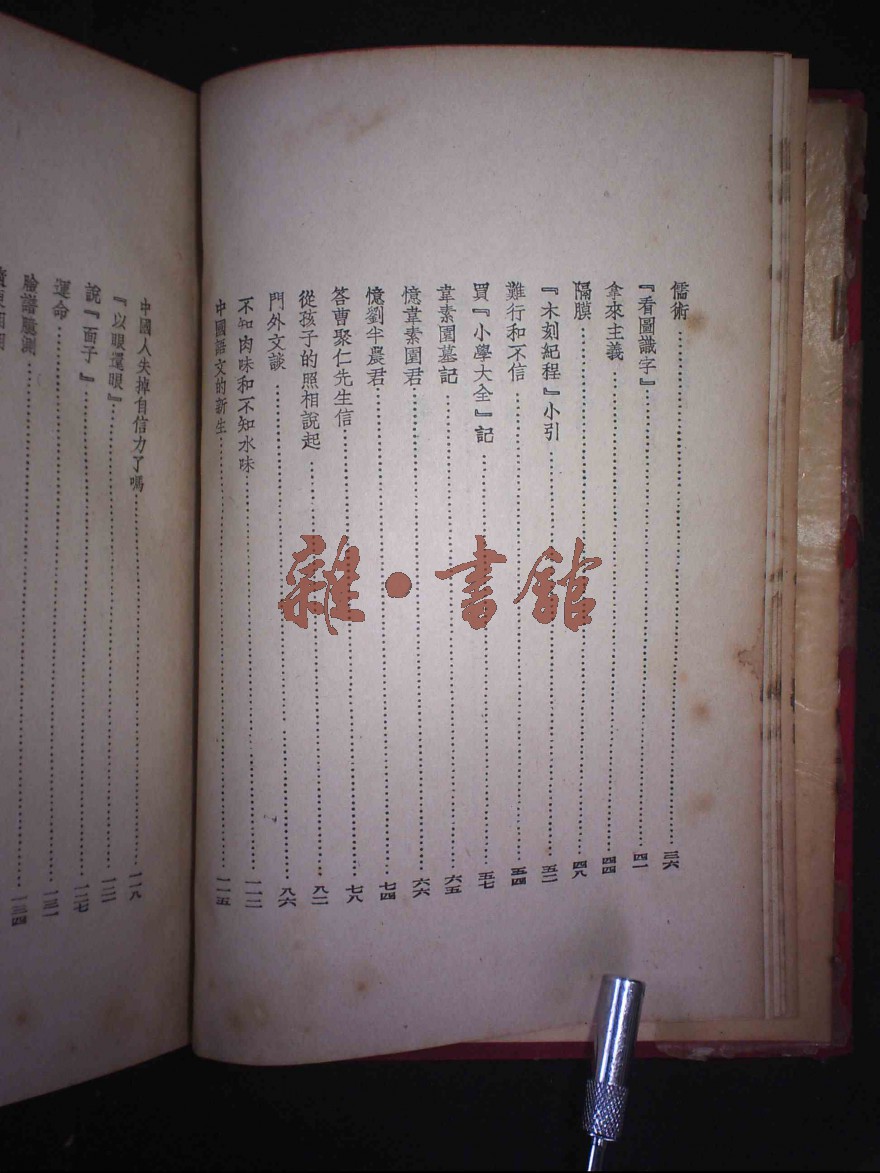 儒術 三六
『看圖識字』 四一
拿來主義 四四
隔膜 四八
『木刻紀程』小引 五二
難行和不信 五四
買『小學大全』記 五七
韋素園墓記 六五
憶韋素園君 六六
憶劉半農君 七四
答曹聚仁先生信 七八
從孩子的照相說起 八二
門外文談 八六
不知肉味和不知水味 一一二
中國語文的新生 一一五
中國人失掉自信力了嗎 一一八
『以眼還眼』 一二一
說『面子』 一二七
運命 一三一
臉譜臆測 一三四
雜·書館